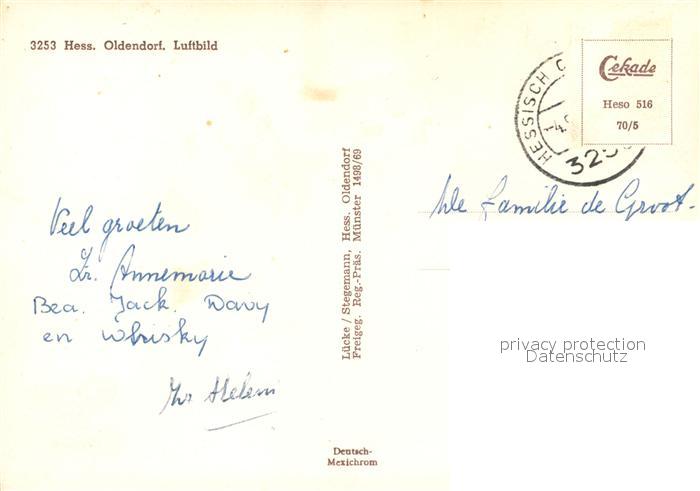 3253 Hess. Oldendorf. Luftbild
Veel groeten
Zr. Annemarie
Bea. Jack. Davy
en Whisky
Lücke / Stegemann, Hess. Oldendorf
Freigeg. Reg.-Präs. Münster 1498/69
Deutsch-
Mexichrom
HESSISCH
325
Cekade
Heso 516
70/5
Familie de Groot.
privacy protection
Datenschutz